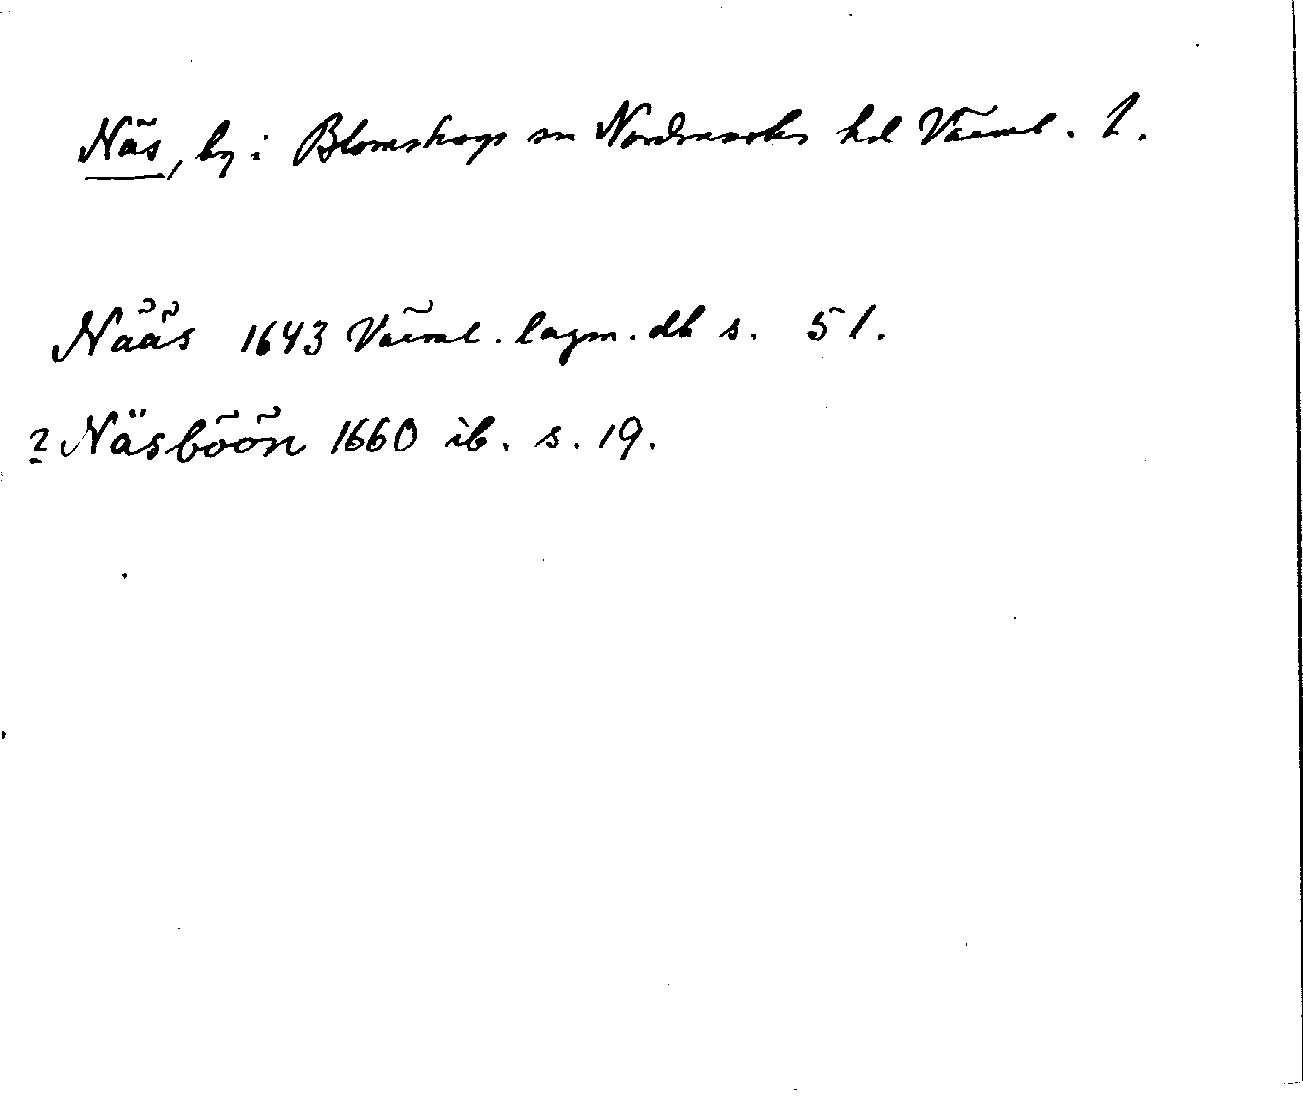 Näs, by i Blomskogs sn Nordmarks hd Värml. l.
Nääs 1643 Värml. lagm. db s. 51.
? Näsböön 1660 ib. s. 19.